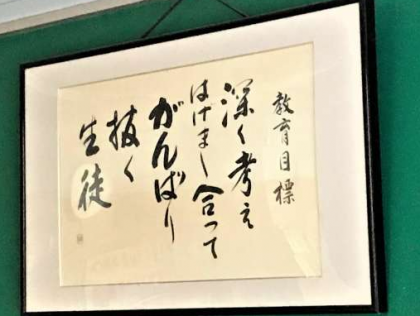 教育目標
深く考え
はげまし合って
がんばり
抜く
生徒